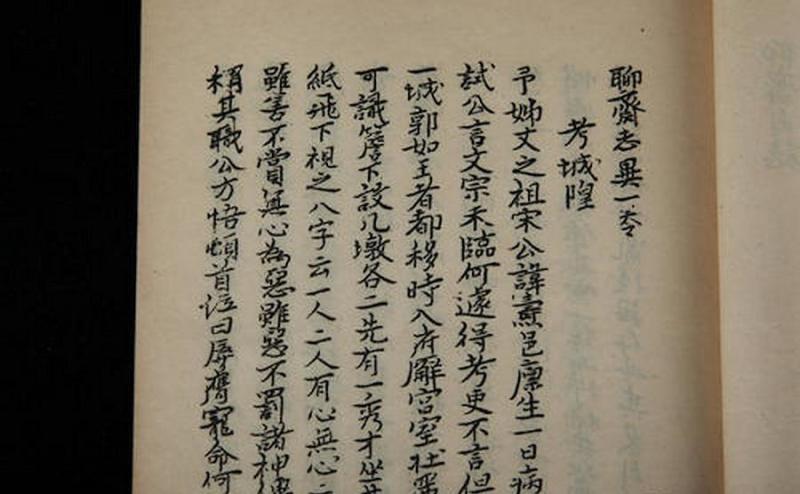 聊齋志異一卷
考城隍
予姊丈之祖宋公諱燾邑廩生一日病
試公言文宗未臨何遽得考吏不言但
一城郭如王者都移時入府廨宮室壯麗
可識簷下設几墩各二先有一秀才坐其
紙飛下視之八字云一人二人有心無心二
雖善不賞無心為惡雖惡不罰諸神傳
稱其職公方悟頓首泣曰辱膺寵命何